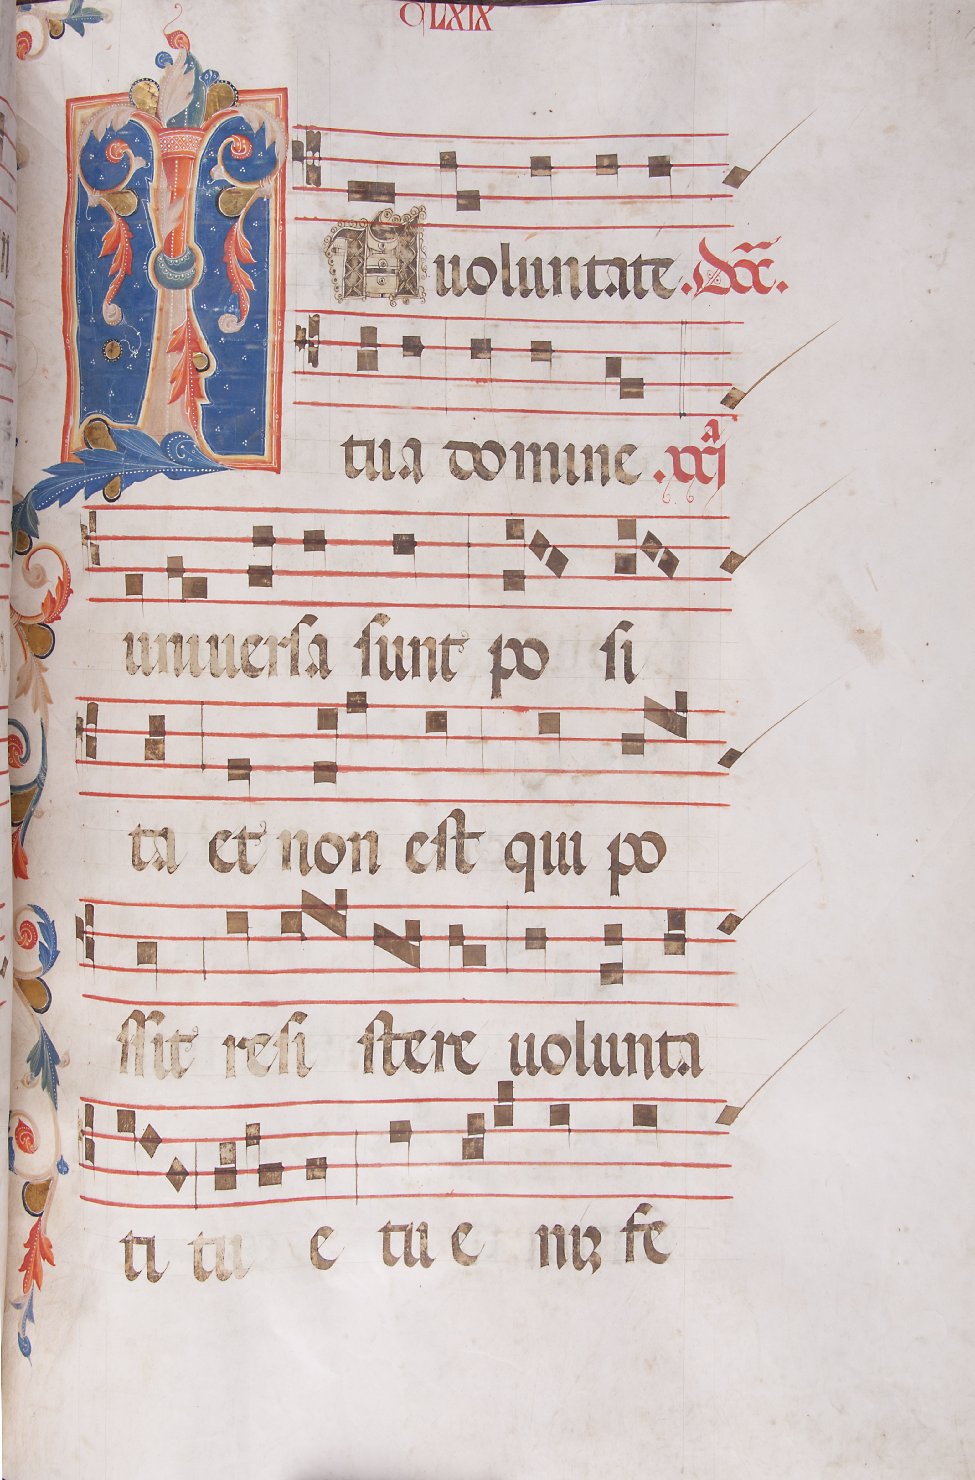 CLXIX
IN uoluntate. Dcꝫ.
tua domine .xxiᵃ
uniuersa sunt po si
ta et non est qui po
ssit resi stere uolunta
ti tu e tu e nꝫ fe